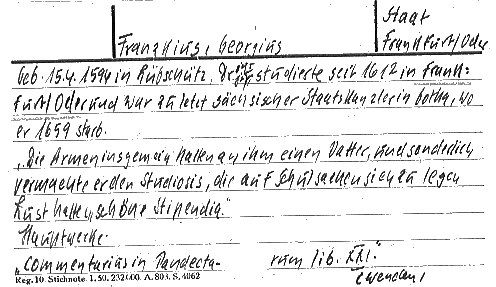 Staat
Frantzkius, Georgius
Frankfurt/Oder
Geb. 15.4.1594 in Rübschütz. Dr. jur. studierte seit 1612 in Frank=
furt/Oder und war zuletzt sächsischer Staatskanzler in Gotha, wo
er 1659 starb.
„Die Armen insgemein hatten an ihm einen Vatter, und sonderlich
vermachte er den Studiosis, die auf Schulsachen sich zu legen
Lust hatten, schöne Stipendia."
Hauptwerke:
„Commentarius in Pandecta-
rum lib. XXI."
Reg. 10. Stichnote. 1.50. 232000. A. 803. S. 4062
(wenden)